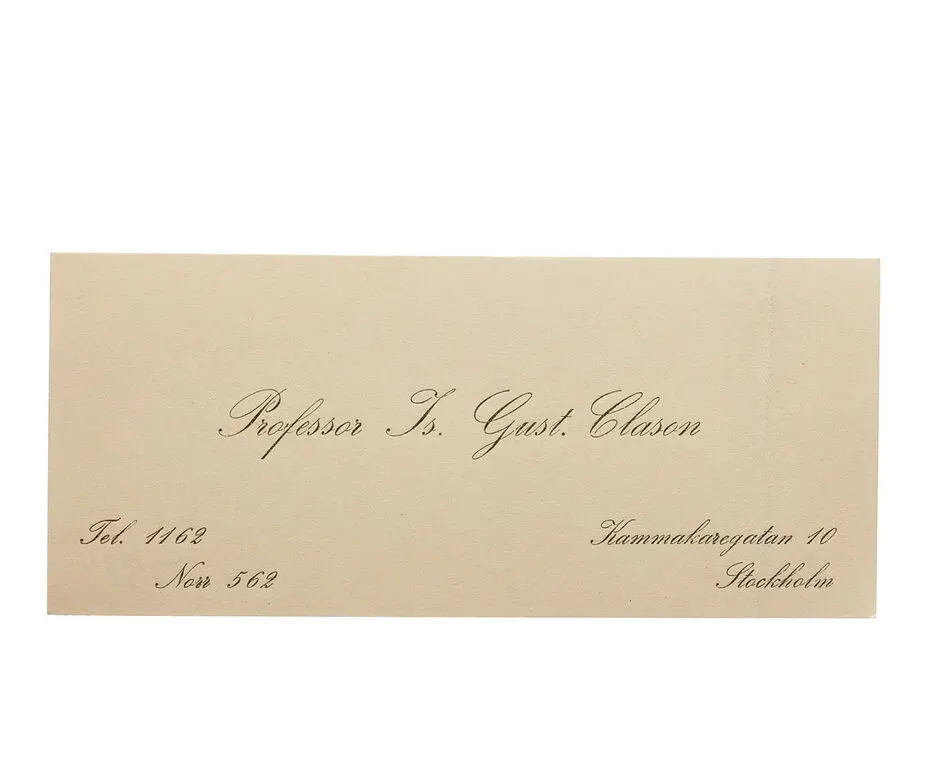 Professor Is. Gust. Clason
Tel. 1162
Norr 562
Kammakaregatan 10
Stockholm